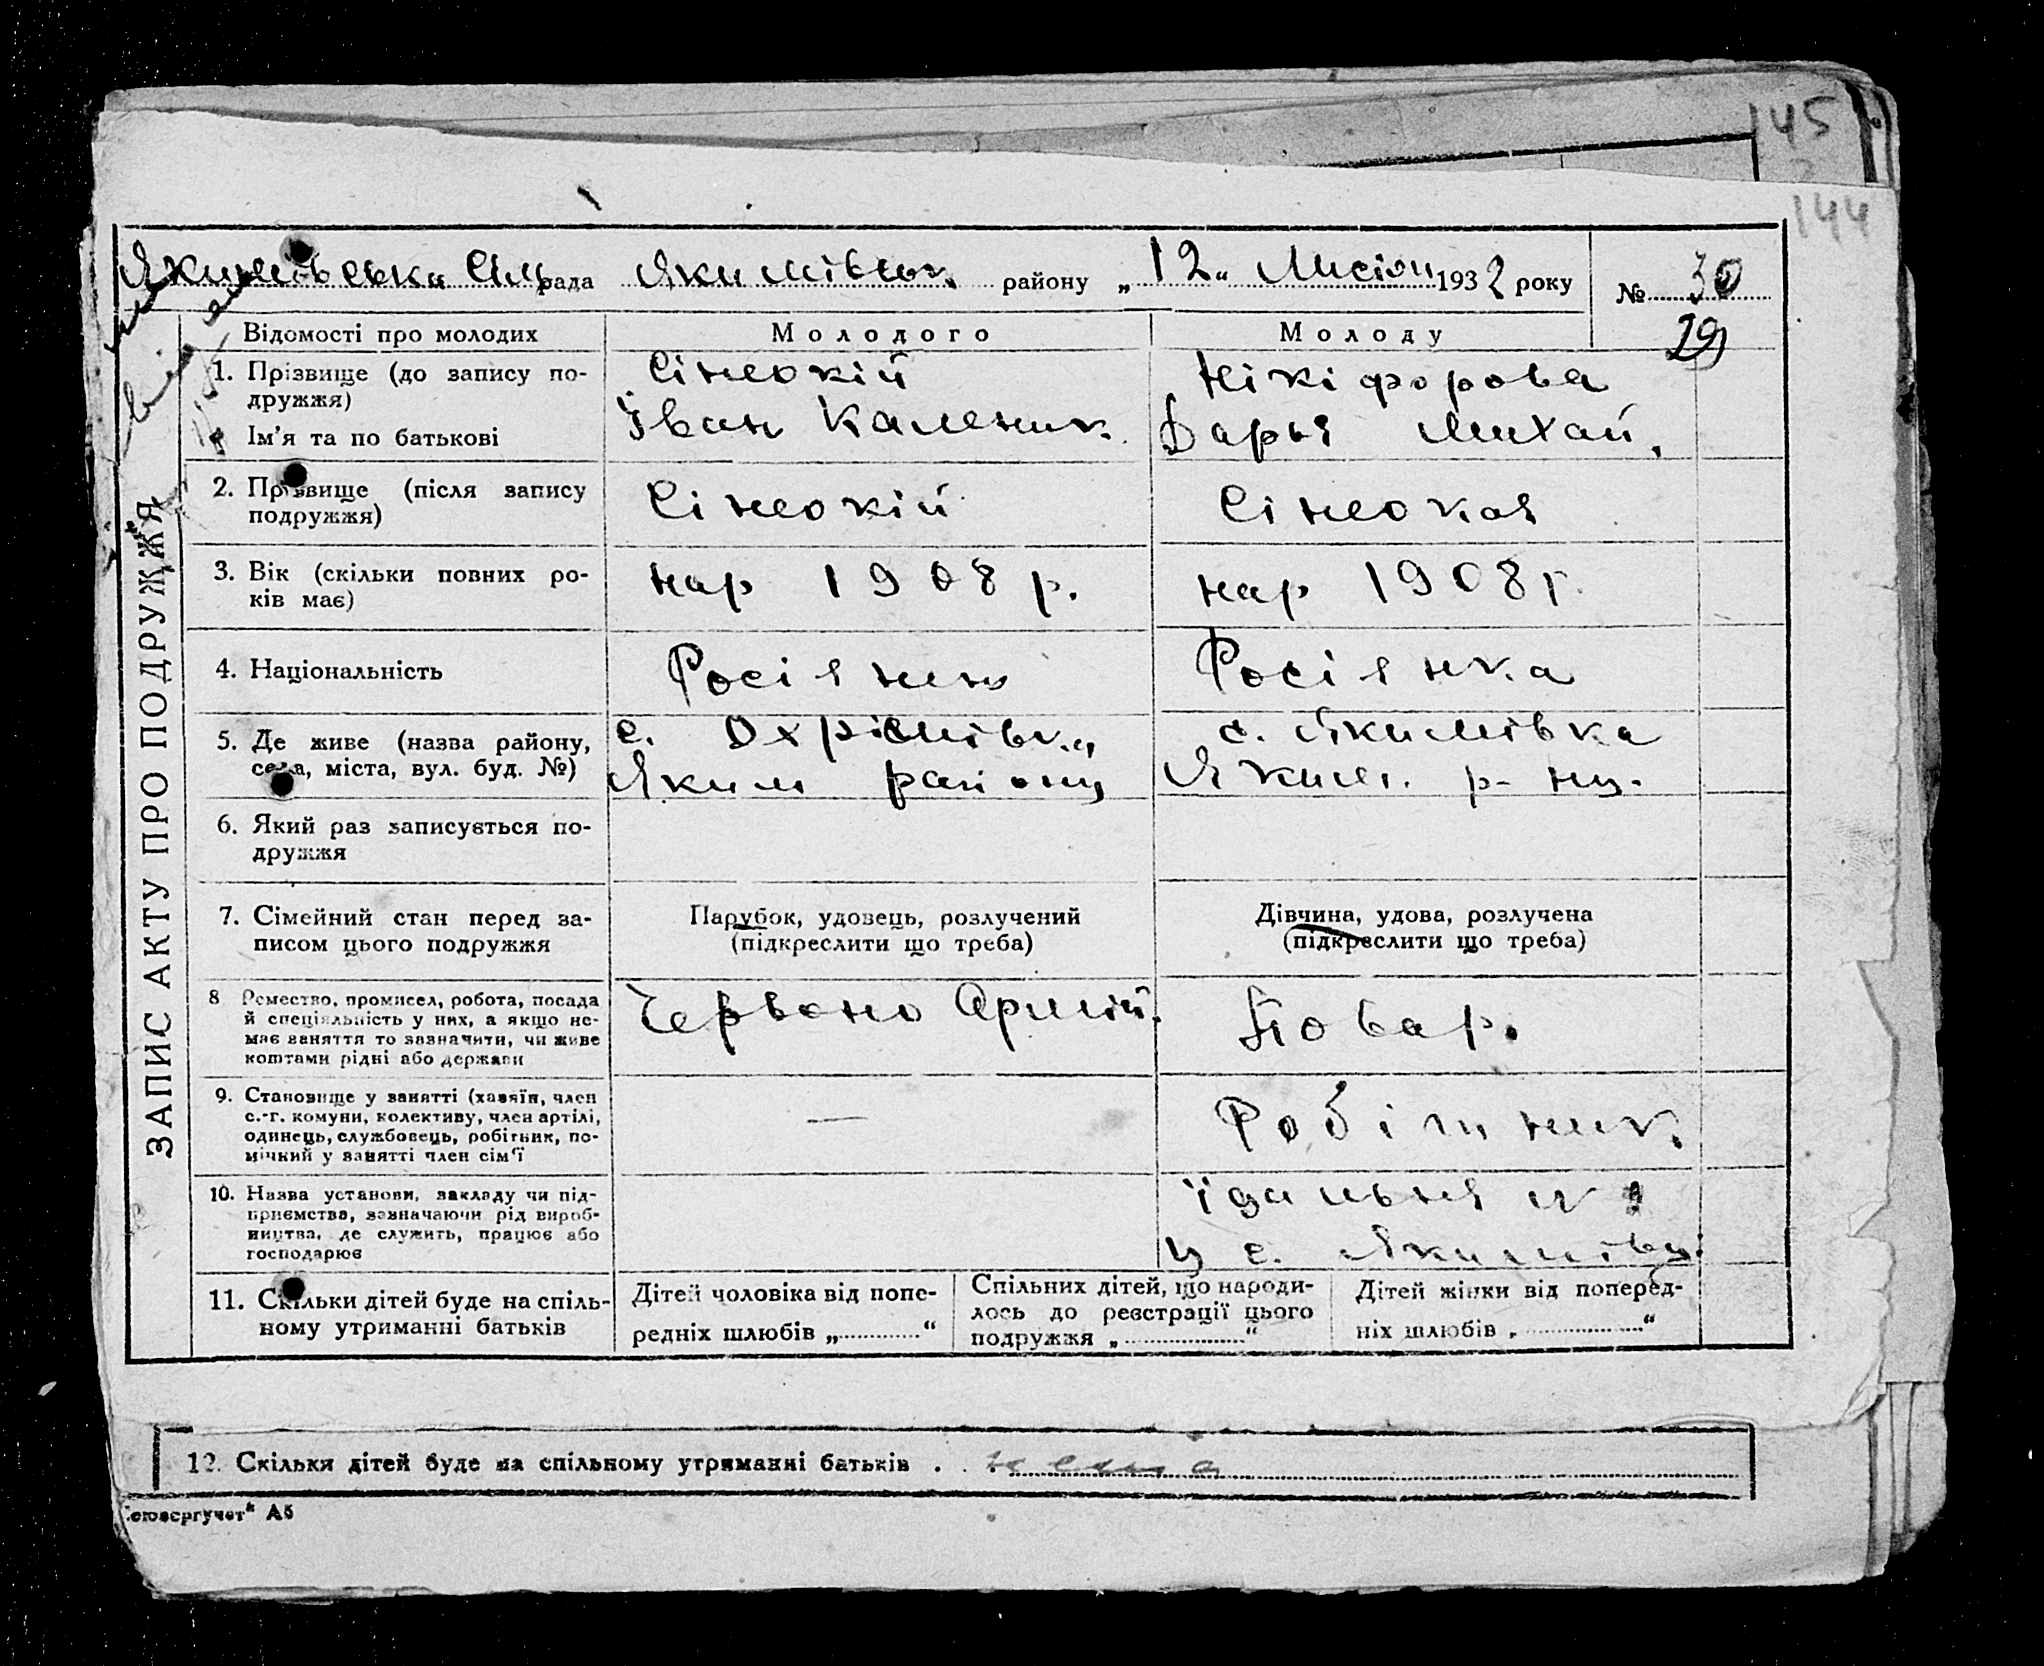 145
144
Якимівська Сільрада Якимівськ. району „12“ Листоп 1932 року № 30
29
ЗАПИС АКТУ ПРО ПОДРУЖЖЯ
Відомості про молодих Молодого Молоду
1. Прізвище (до запису по- Сінеокій Нікіфорова
дружжя)
Ім'я та по батькові Іван Каленик. Дарья Михай.
2. Прізвище (після запису Сінеокій Сінеокая
подружжя)
3. Вік (скільки повних ро- нар 1908 р. нар 1908 г.
ків має)
4. Національність Росіянин Росіянка
5. Де живе (назва району, с. Охрімівка с. Якимівка
села, міста, вул. буд. №) Яким району Яким. р-ну.
6. Який раз записується по-
дружжя
7. Сімейний стан перед за- Парубок, удовець, розлучений Дівчина, удова, розлучена
писом цього подружжя (підкреслити що треба) (підкреслити що треба)
8 Ремество, промисел, робота, посада Червоно Армій. Повар.
й спеціяльність у них, а якщо не-
має заняття то зазначити, чи живе
коштами рідні або держави
9. Становище у занятті (хазяїн, член — Робітник.
с.-г. комуни, колективу, член артілі,
одинець, службовець, робітник, по-
мічний у занятті член сім'ї
10. Назва установи, закладу чи під- їдальня №
приємства, зазначаючи рід вироб-
ництва, де служить, працює або у с. Якимівці
господарює
11. Скільки дітей буде на спіль- Дітей чоловіка від попе- Спільних дітей, що народи- Дітей жінки від поперед-
ному утриманні батьків редніх шлюбів „ “ лось до реєстрації цього ніх шлюбів „ “
подружжя „ “
12. Скільки дітей буде на спільному утриманні батьків . . . нема